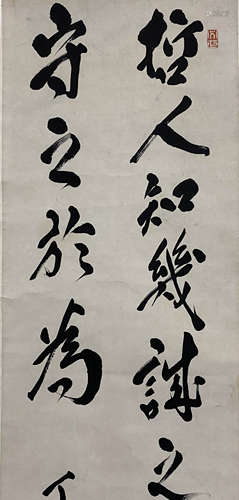 哲人知幾誠之
守之於為